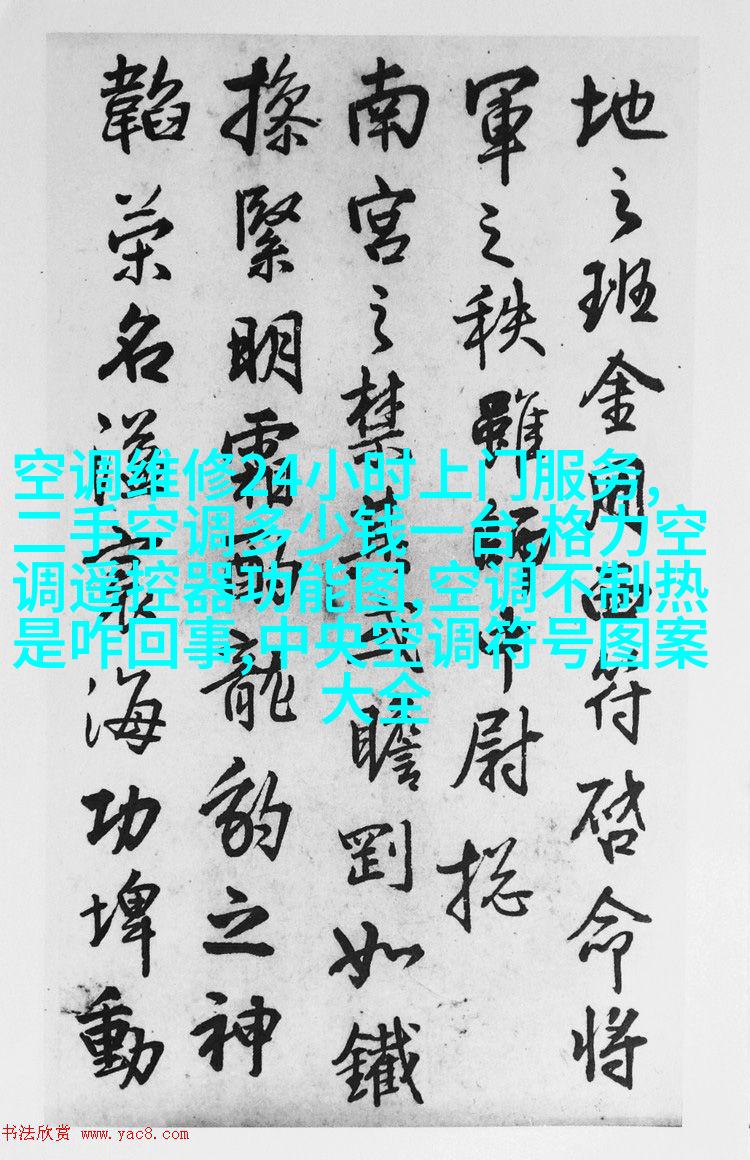 地之班金符啓命将
軍之秩雖尉揔
南宮之禁瞻罰如鐵
操緊明霜龍豹之神
韜榮名溢海功埤動
空调维修24小时上门服务,
二手空调多少钱一台,格力空
调遥控器功能图,空调不制热
是咋回事,中央空调符号图案
大全
书法欣赏 www.yac8.com